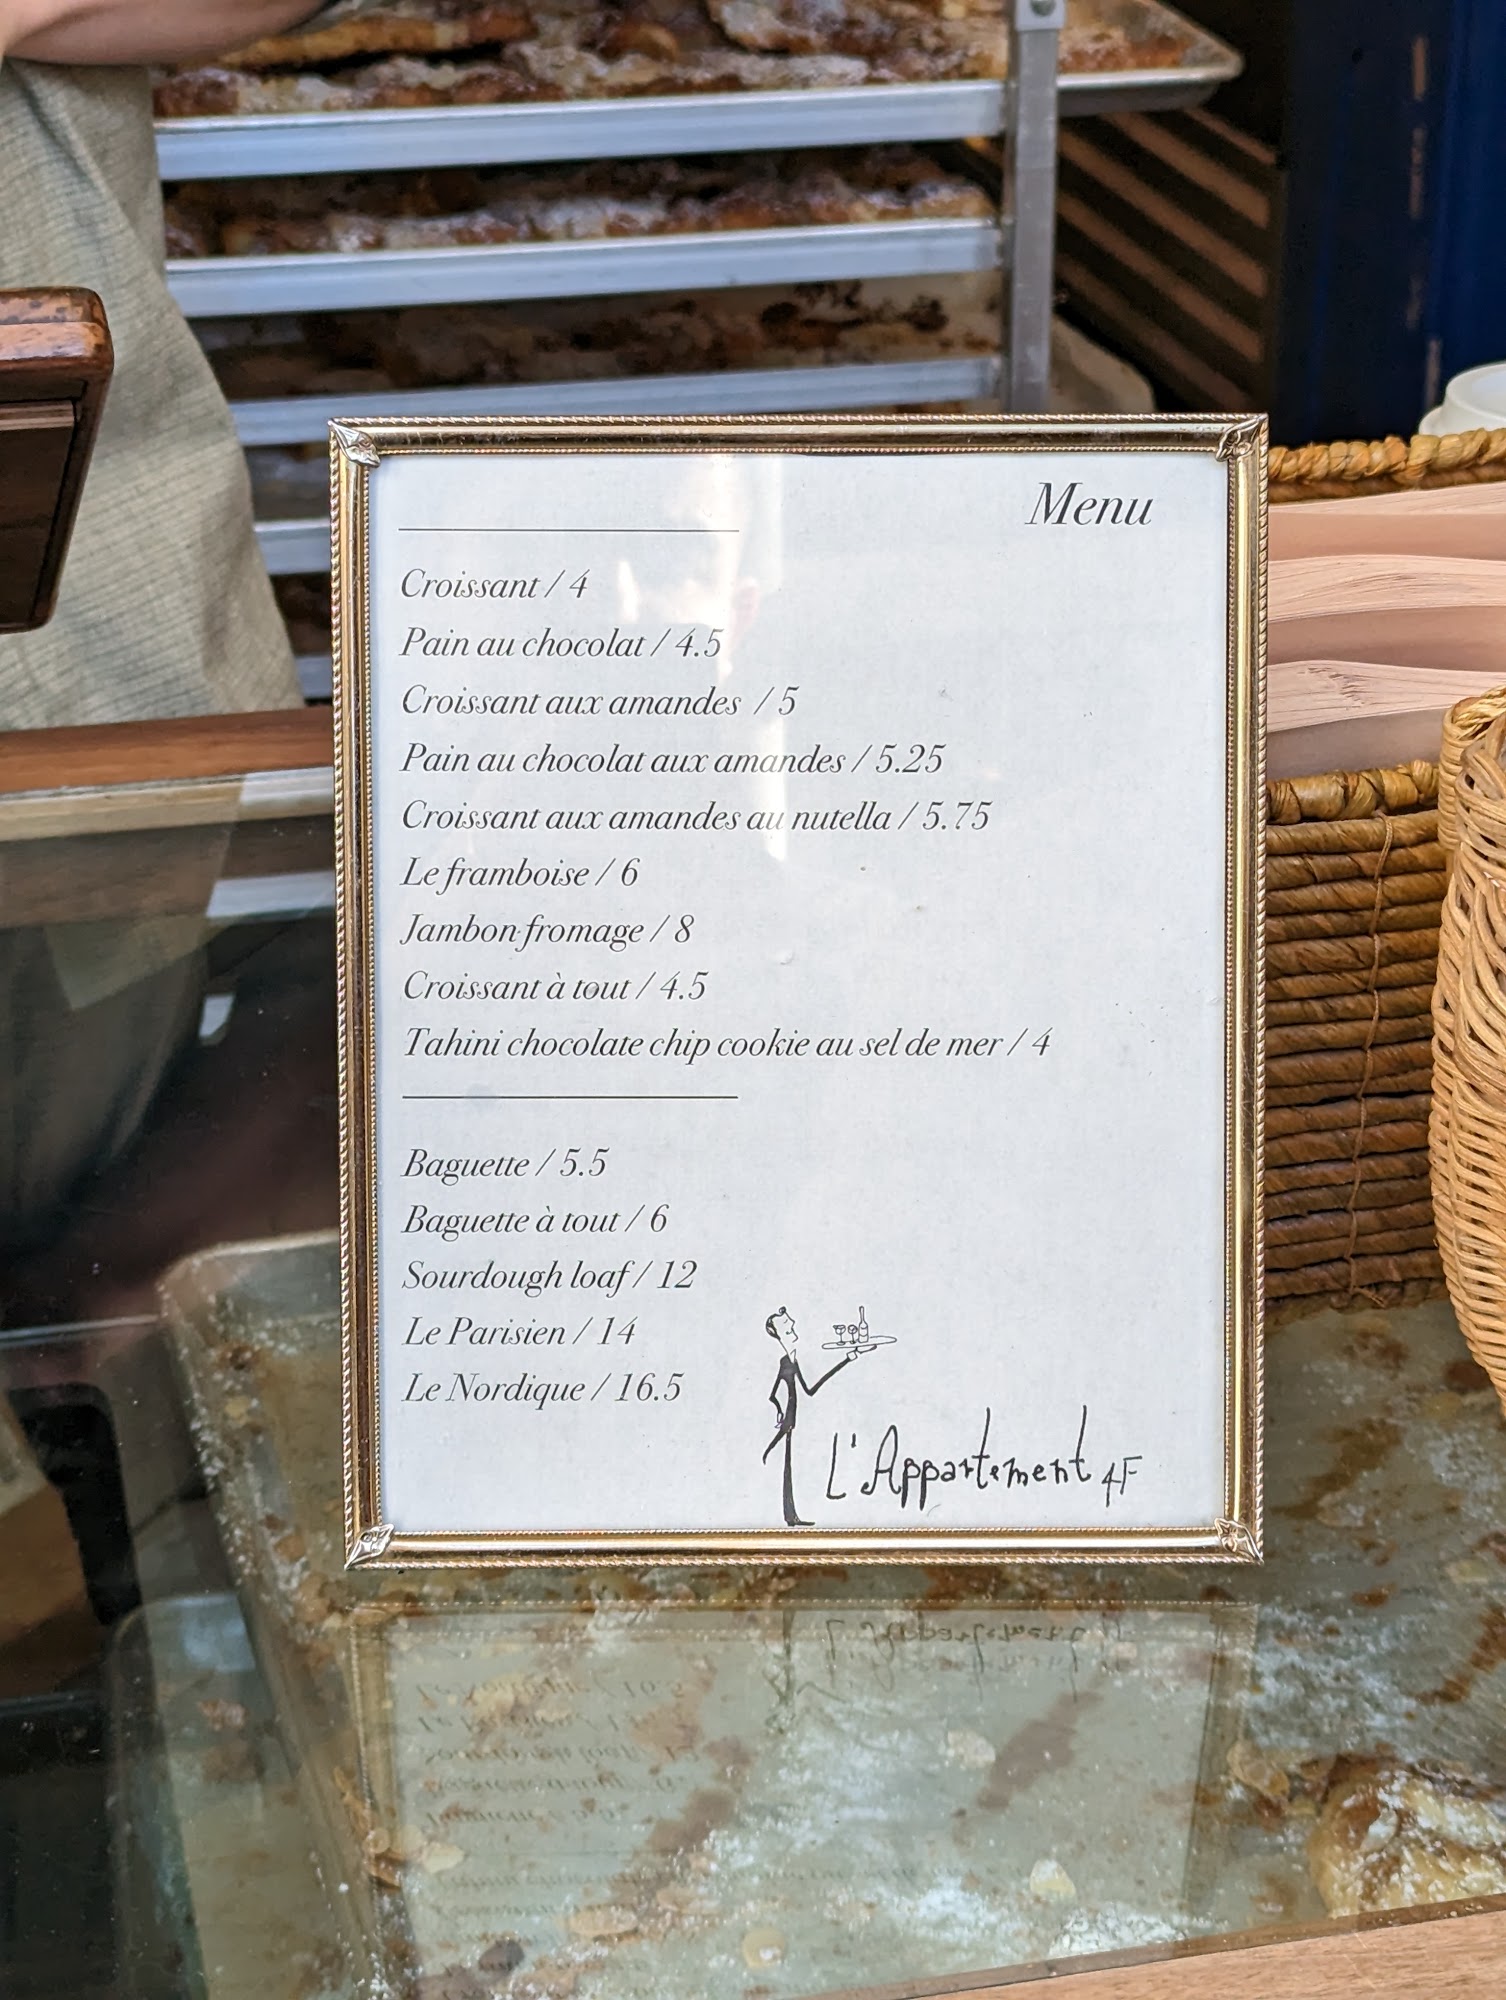 Menu
Croissant / 4
Pain au chocolat / 4.5
Croissant aux amandes / 5
Pain au chocolat aux amandes / 5.25
Croissant aux amandes au nutella / 5.75
Le framboise / 6
Jambon-fromage / 8
Croissant à tout / 4.5
Tahini chocolate chip cookie au sel de mer / 4
Baguette / 5.5
Baguette à tout / 6
Sourdough loaf / 12
Le Parisien / 14
Le Nordique / 16.5
L'Appartement 4F